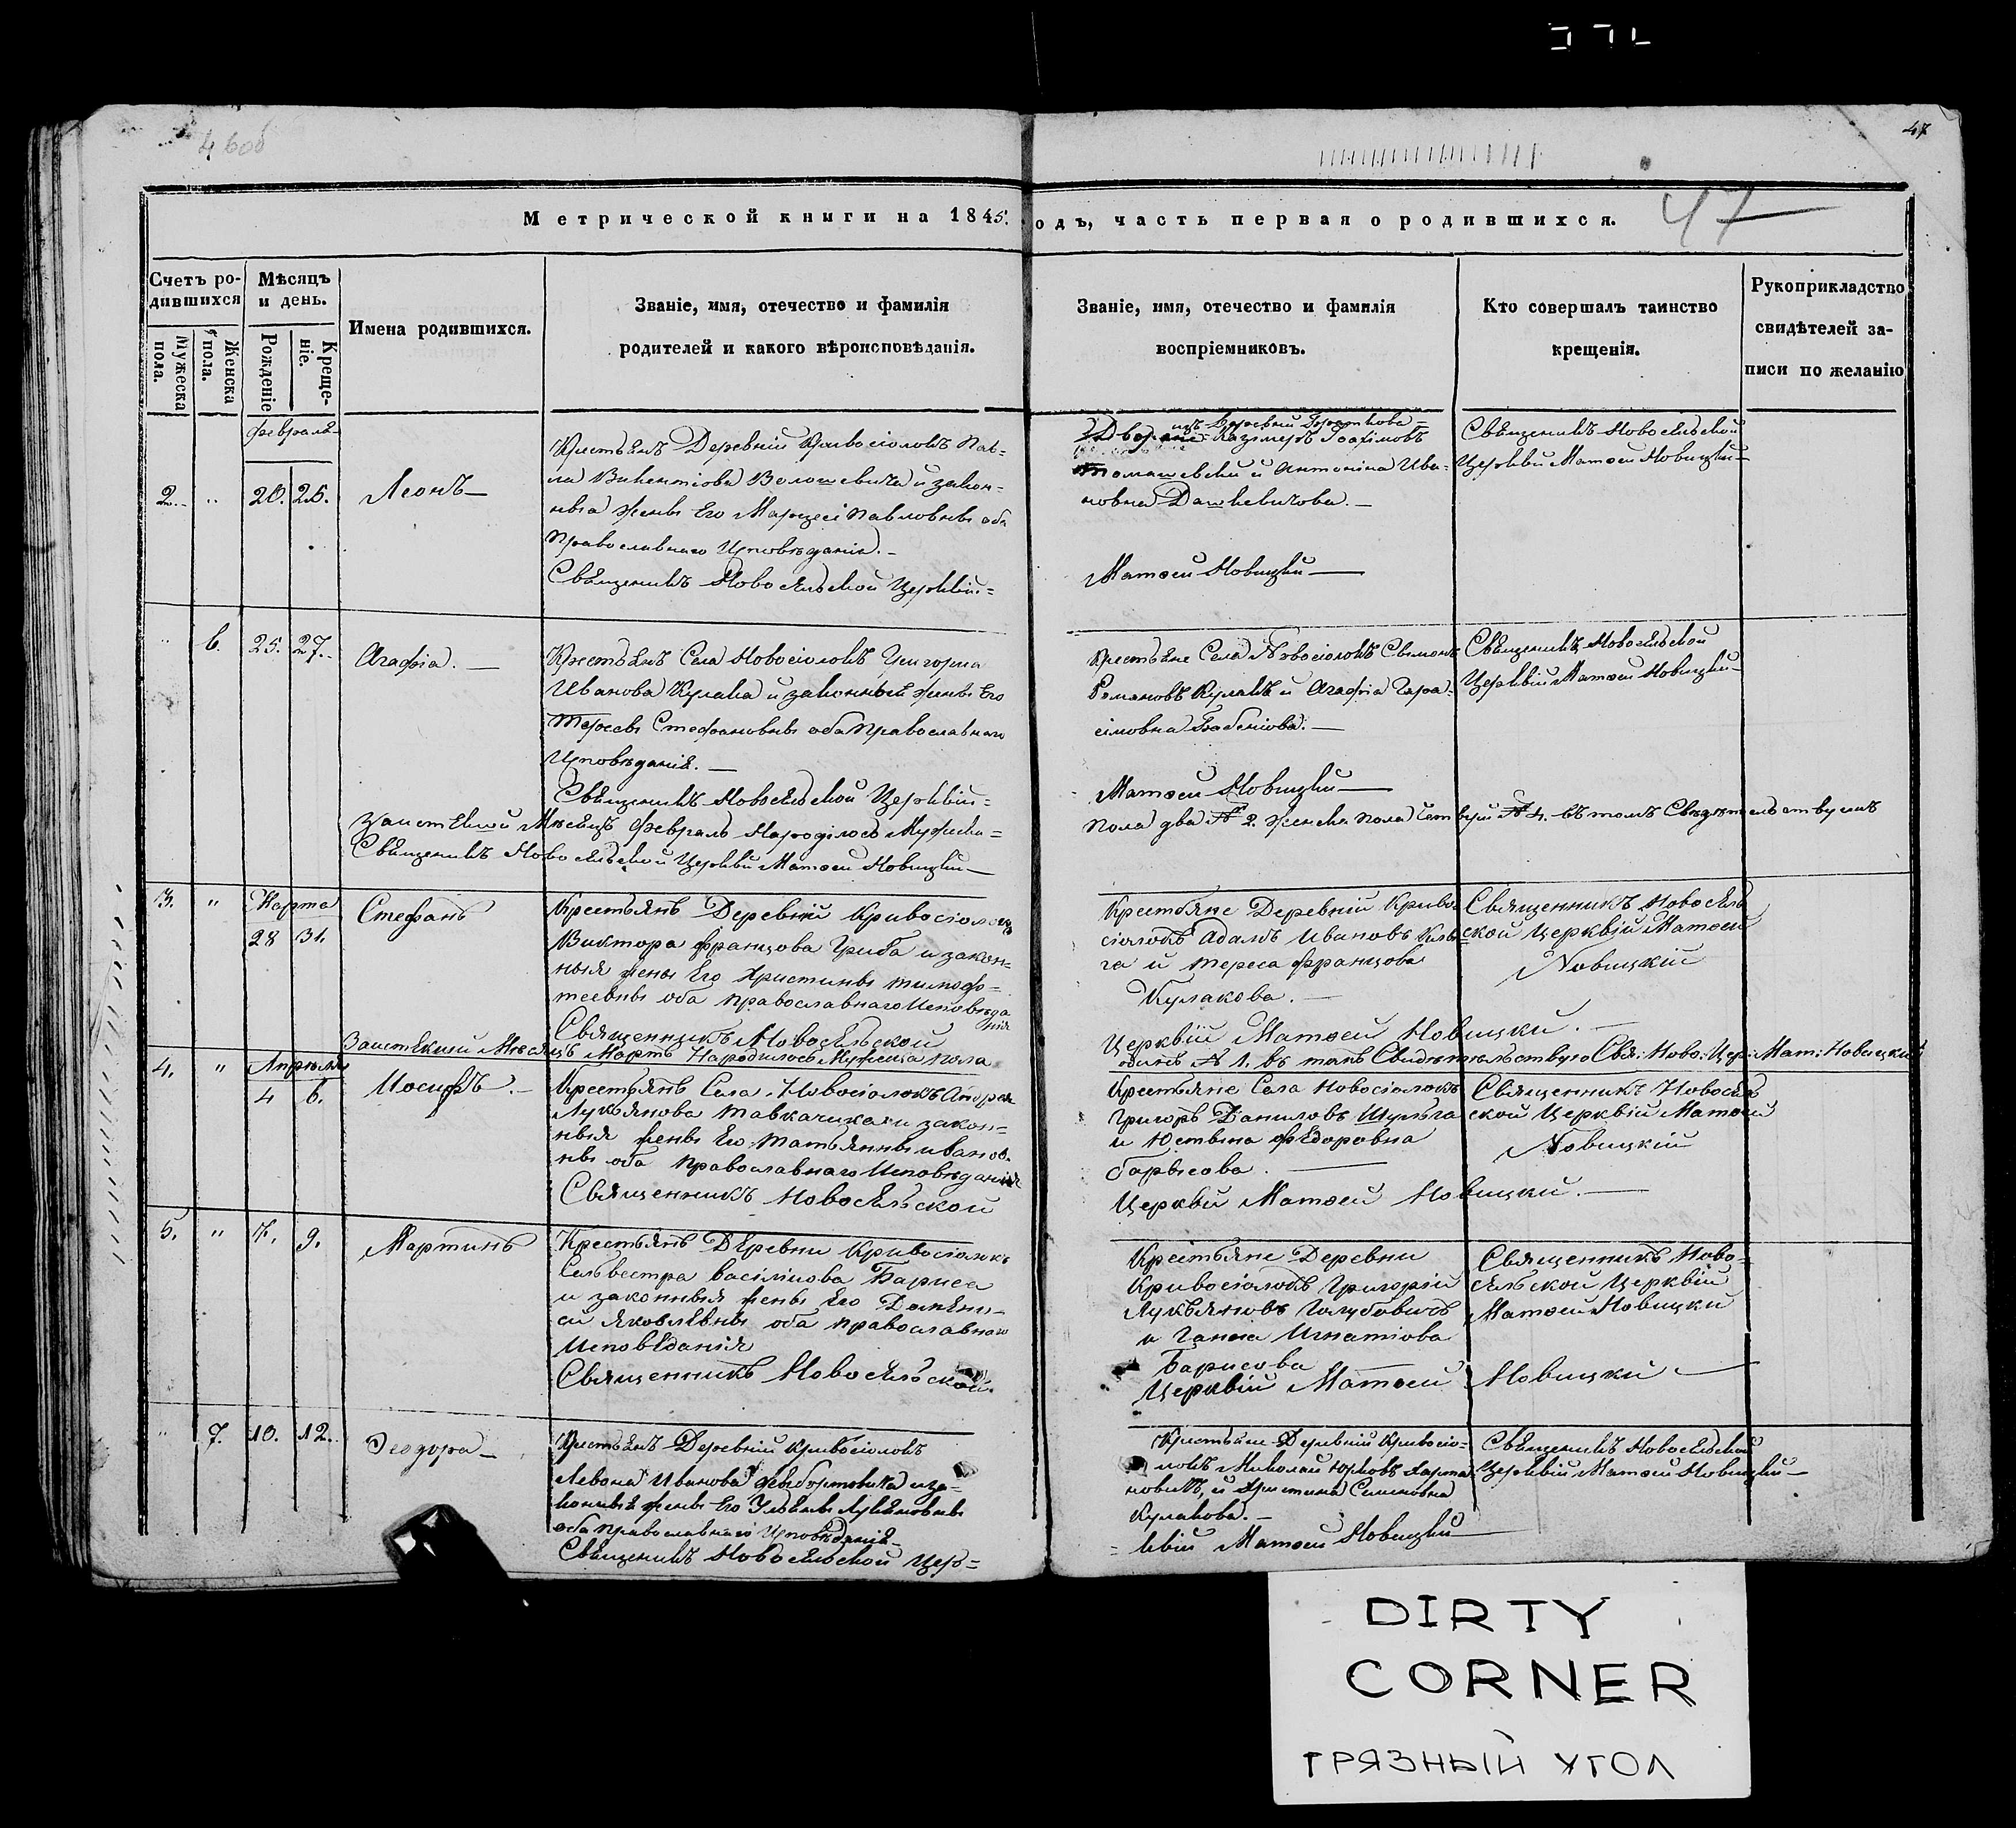 4 6об
47
Метрической книги на 1845. одъ, часть первая о родившихся. 47
Счетъ родившихся
Мужеска пола.
Женска пола.
Мѣсяцъ и день.
Рожденіе
Крещеніе.
Имена родившихся.
Званіе, имя, отечество и фамилія
родителей и какого вѣроисповѣданія.
Званіе, имя, отечество и фамилія
воспріемниковъ.
Кто совершалъ таинство
крещенія.
Рукоприкладство
свидѣтелей за-
писи по желанію
Февраля
2. " 20. 25. Леонъ
Крестьянъ Деревній Кривосіолокъ Пав=
ла Викентіова Волошевича и закон=
ныя жены Его Марцесі Павловны оба
Православнаго Исповѣданія.
Священикъ Новоельской Церквій=
изъ Деревни
Дворяне Казімеръ Іоахімовъ
Томашевскій и Антоніна Ива=
новна Дашкевичова.
Матѳей Новицкій
Священикъ Новоельской
Церквій Матѳей Новицкій
" 6. 25. 27. Агафіа.
Крестьянъ Села Новосіолокъ
Иванова Кулака и законный жены Его
Тересы Стефановны оба Православнаго
Исповѣданія.
Священикъ Новоельской Церквій=
Крестьяне Села Новосіолокъ Сымонъ
Романовъ Кулакъ и Агафіа Гара=
сімовна
Матѳей Новицкій
Священикъ Новоельской
Церквій Матѳей Новицкій
Заистекшій Мѣсяцъ Февраль Народілось Мужска=
пола два № 2. женска пола № 4. въ томъ
Священикъ Новоельской Церквій Матѳей Новицкій
3. " Марта
28 31. Стефанъ
Крестьянъ Деревній Кривосіолокъ
Виктора Францова Гриба и закон=
ныя жены Его Христины Тимофо=
теевны оба православнаго Исповѣда
нія
Священникъ Новосельской
Крестьяне Деревній Криво
сіолокъ Адамъ Ивановъ
га и Тереса Францова
Кулакова.
Церквій Матѳей Новицкій.
Священникъ Новосель
ской Церквій Матѳей
Новицкій
Заистекшій Мѣсяцъ Мартъ Народилось Мужеска пола
одинъ № 1. въ томъ Свидѣтельствую Свя: Ново: Цер: Мат: Новицкій
4. " Апрѣля
4 6. Иосифъ.
Крестьянъ Села Новосіолокъ
Лукьянова Тавкачика и закон=
ныя жены Его Татьянны Иванов
ны оба православнаго Исповѣданія
Священникъ Новосельской
Крестьяне Села Новосіолокъ
Григоръ Даниловъ Шульга
и Юстына Федоровна
Барысова.
Церквій Матѳей Новицкій.
Священникъ Новосел
ской Церквій Матѳей
Новицкій
5. " 7. 9. Мартинъ
Крестьянъ Деревни Кривосіолокъ
Сельвестра Васіліова Бариса
и законныя жены Его
Яковлевны оба православнаго
Исповѣданія
Священникъ Новосельской
Крестьяне Деревни
Кривосіолокъ Григорій
Лукьяновъ Голубовичъ
и Ганна Игнатіова
Барисова
Церквій Матѳей Новицкій
Священникъ Ново=
сельской Церквій
Матѳей Новицкій
" 7. 10. 12. Ѳеодора
Крестьянъ Деревній Кривосіолокъ
Левона Иванова и за=
конныя жены Его Ульяны Лукіановны
оба православнаго Исповѣданія
Священикъ Новоельской Цер=
Крестьяне Деревній Кривосіо=
локъ Миколай Юрковъ
и Христина Семіоновна
Кулакова.
=квій Матѳей Новицкій
Священикъ Новоельской
Церквій Матѳей Новицкій
DIRTY
CORNER
ГРЯЗНЫЙ УГОЛ